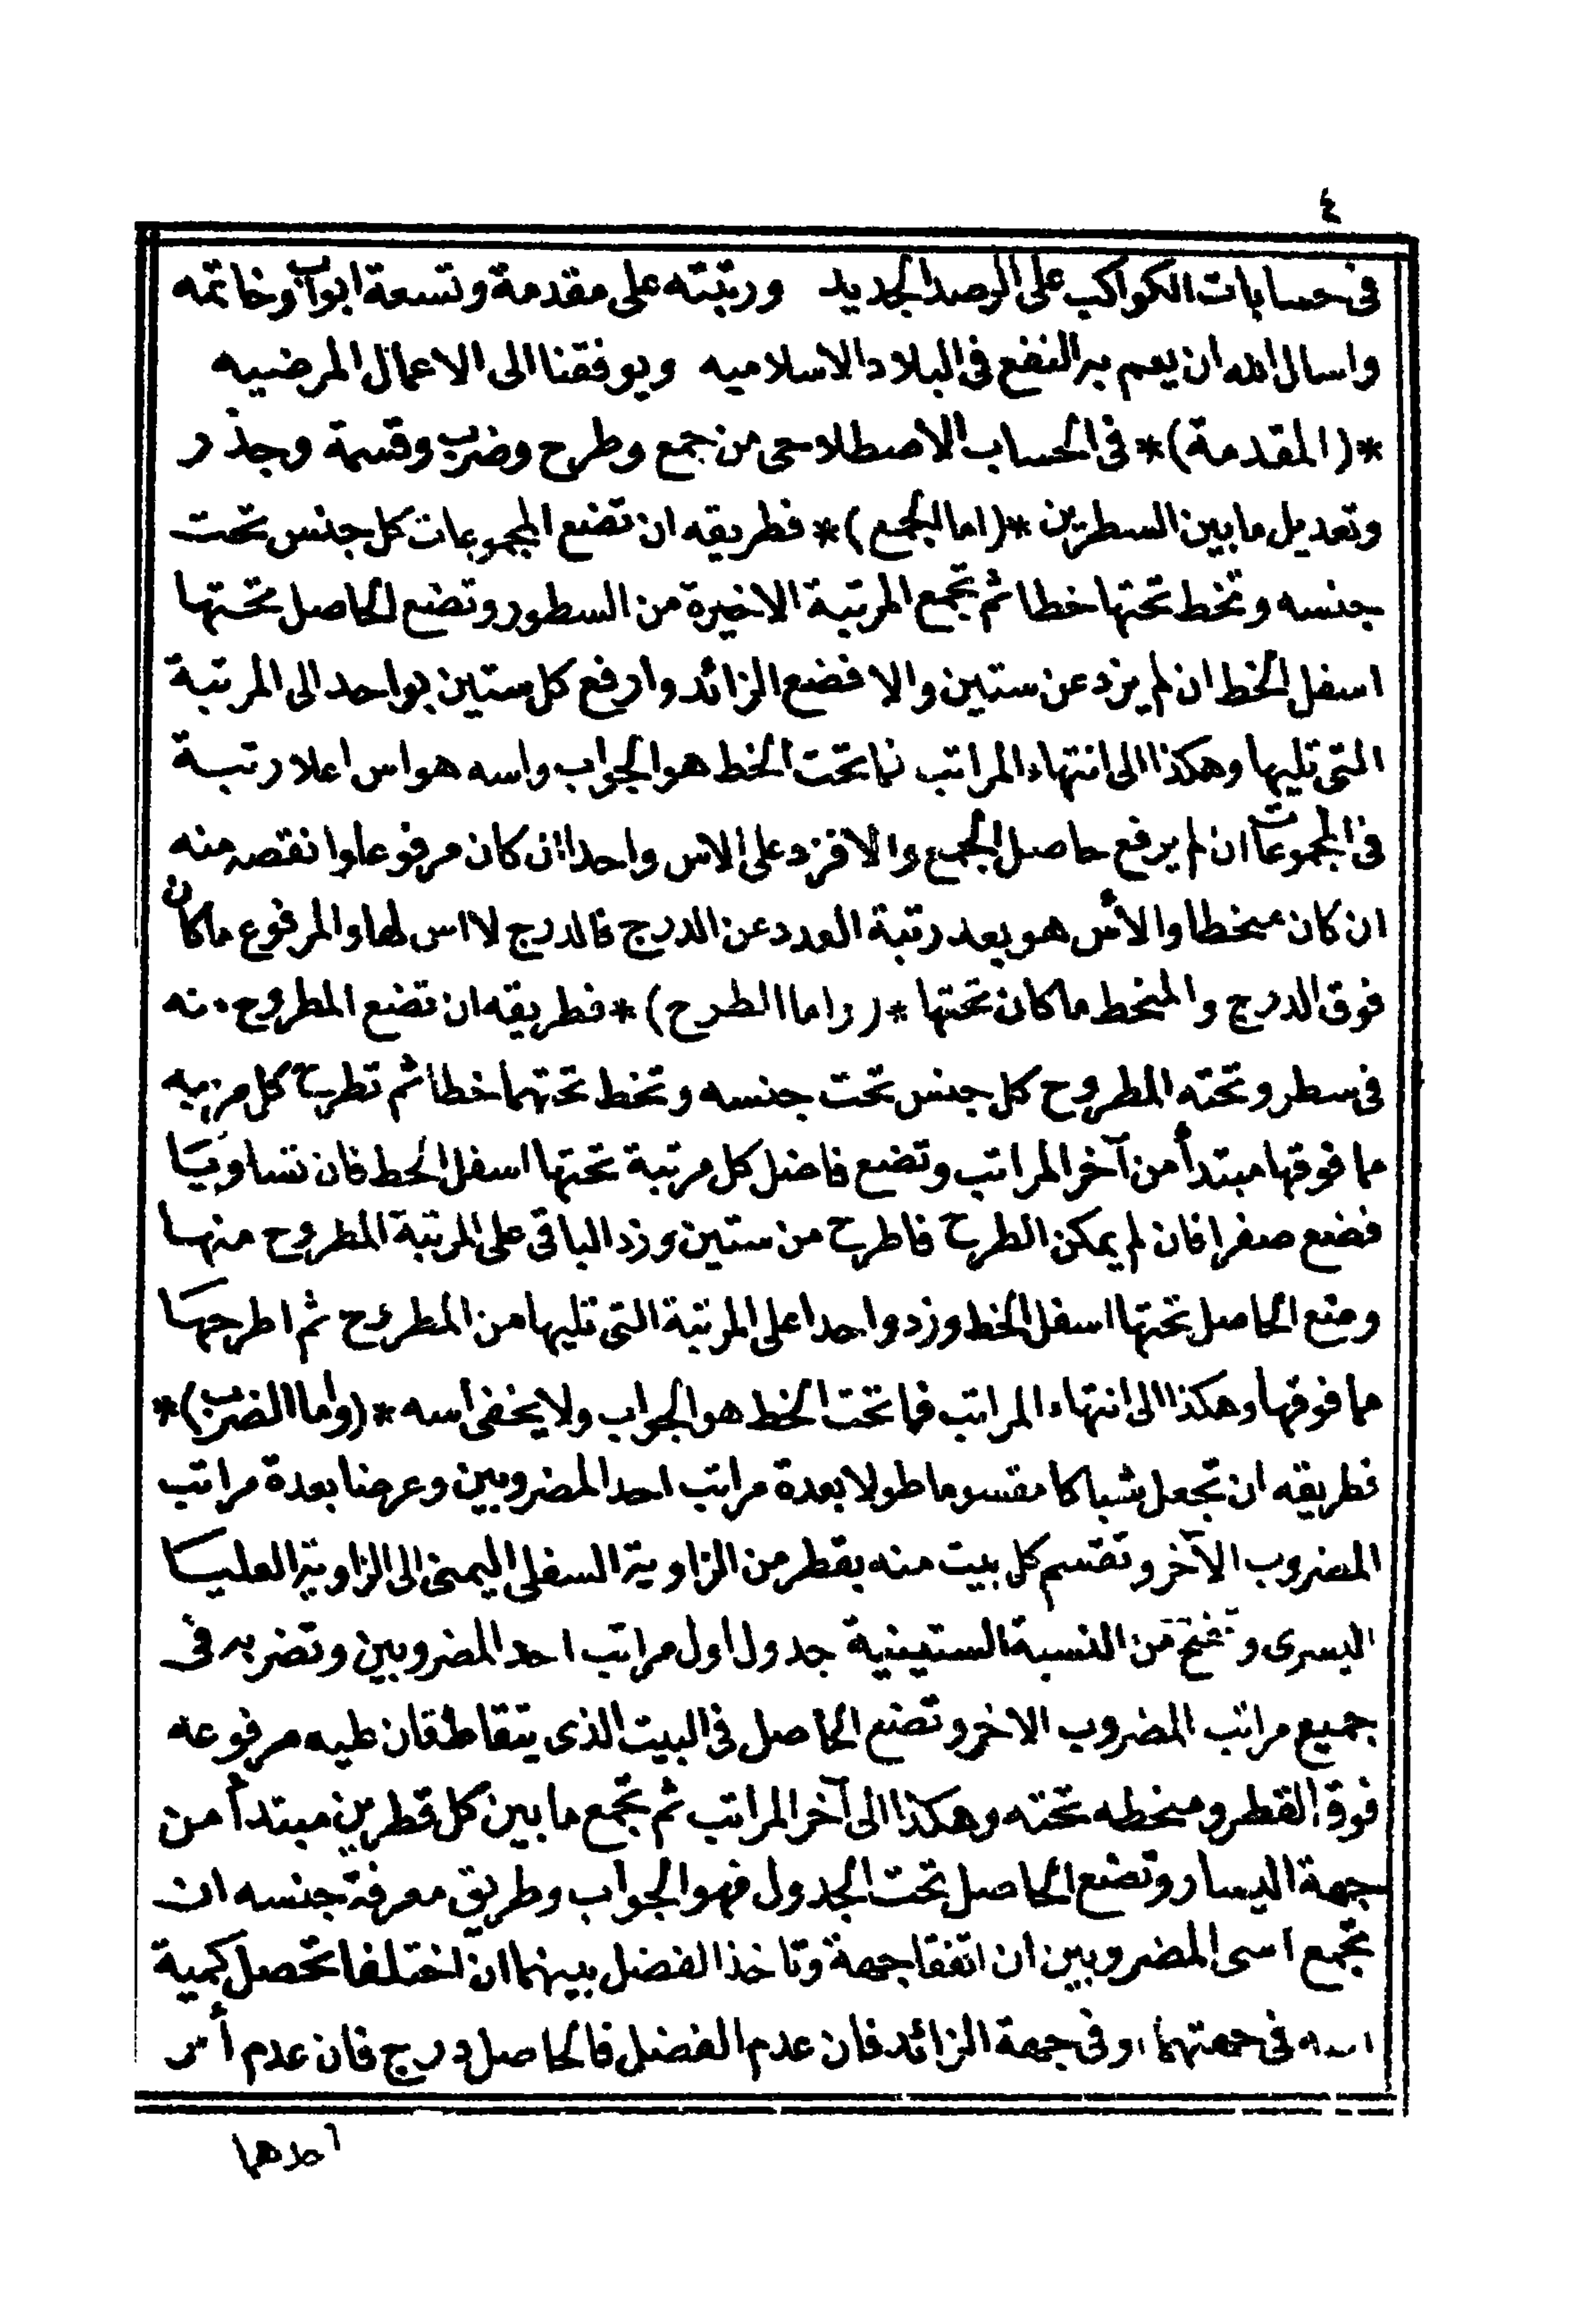 ٤
فى حسابات الكواكب على الرصد الجديد ورتبته على مقدمة وتسعة ابواب وخاتمه
واسال الله ان يعم به النفع فى البلاد الاسلاميه ويوفقنا الى الاعمال المرضيه
*(المقدمة)* فى الحساب الاصطلاحى من جمع وطرح وضرب وقسمة وجذر
وتعديل ما بين السطرين *(اما الجمع)* فطريقه ان تضع المجموعات كل جنس تحت
جنسه وتخط تحتها خطا ثم تجمع المرتبة الاخيرة من السطور وتضع الحاصل تحتها
اسفل الخط ان لم يزد عن ستين والا فضع الزائد وارفع كل ستين بواحد الى المرتبة
التى تليها وهكذا الى انتهاء المراتب فما تحت الخط هو الجواب واسه هو اس اعلا رتبة
فى المجموعات ان لم يرفع حاصل الجمع والا فزد على الاس واحدا ان كان مرفوعا وانقصه منه
ان كان منخطا والأس هو بعد رتبة العدد عن الدرج فالدرج لا اس لها والمرفوع ماكان
فوق الدرج والمنخط ماكان تحتها *(واما الطرح)* فطريقه ان تضع المطروح منه
فى سطر وتحته المطروح كل جنس تحت جنسه وتخط تحتهما خطا ثم تطرح كل مرتبه
مما فوقها مبتدأ من آخر المراتب وتضع فاضل كل مرتبة تحتها اسفل الخط فان تساويتا
فضع صفرا فان لم يمكن الطرح فاطرح من ستين وزد الباقى على المرتبة المطروح منها
وضع الحاصل تحتها اسفل الخط وزد واحدا على المرتبة التى تليها من المطروح ثم اطرحها
مما فوقها وهكذا الى انتهاء المراتب فما تحت الخط هو الجواب ولا يخفى أسه *(واما الضرب)*
فطريقه ان تجعل شباكا مقسوما طولا بعدة مراتب احد المضروبين وعرضا بعدة مراتب
المضروب الآخر وتقسم كل بيت منه بقطر من الزاوية السفلى اليمنى الى الزاوية العليا
اليسرى وتفتح من النسبة الستينية جدول اول مراتب احد المضروبين وتضربه فى
جميع مراتب المضروب الاخر وتضع الحاصل فى البيت الذى يتقاطعان عليه مرفوعه
فوق القطر ومنخطه تحته وهكذا الى آخر المراتب ثم تجمع ما بين كل قطرين مبتدأ من
جهة اليسار وتضع الحاصل تحت الجدول فهو الجواب وطريق معرفة جنسه ان
تجمع اسى المضروبين ان اتفقا جهة وتاخذ الفضل بينهما ان اختلفا تحصل كمية
اسه فى جهتهما او فى جهة الزائد فان عدم الفضل فالحاصل درج فان عدم أس
احدهما